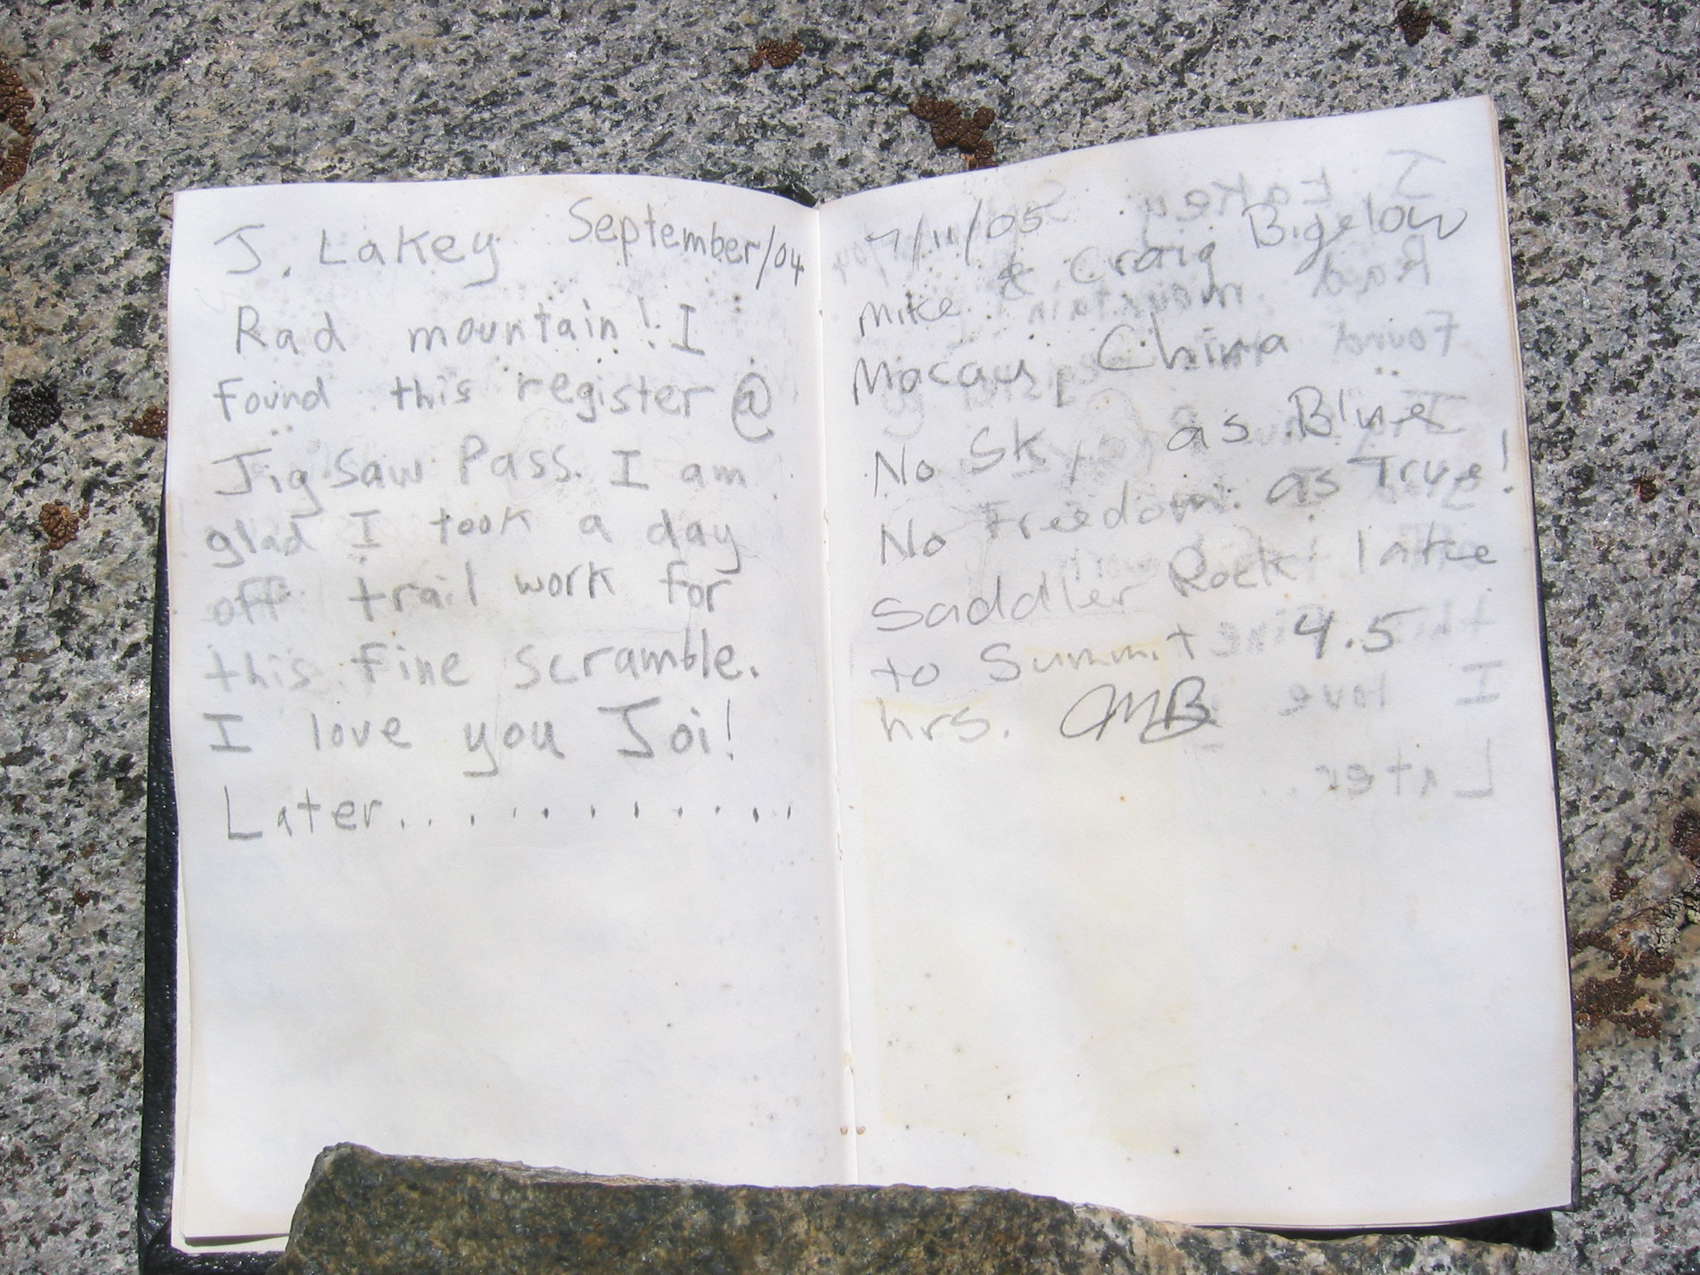 J. Lakey September/04
Rad mountain! I
found this register @
Jigsaw Pass. I am
glad I took a day
off trail work for
this fine scramble.
I love you Joi!
Later.............
7/11/05
Mike & Craig Bigelow
Macau, China
No Sky as Blue
No Freedom as True!
Saddler Rock lake
to Summit 4.5
hrs. CMB